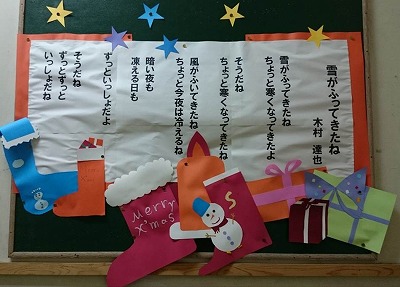 雪がふってきたね
木村 達也
雪がふってきたね
ちょっと寒くなってきたよ
そうだね
ちょっと寒くなってきたね
風がふいてきたね
ちょっと今夜は冷えるね
暗い夜も
凍える日も
ずっといっしょだよ
そうだね
ずっとずっと
いっしょだね
Merry
X'mas
S